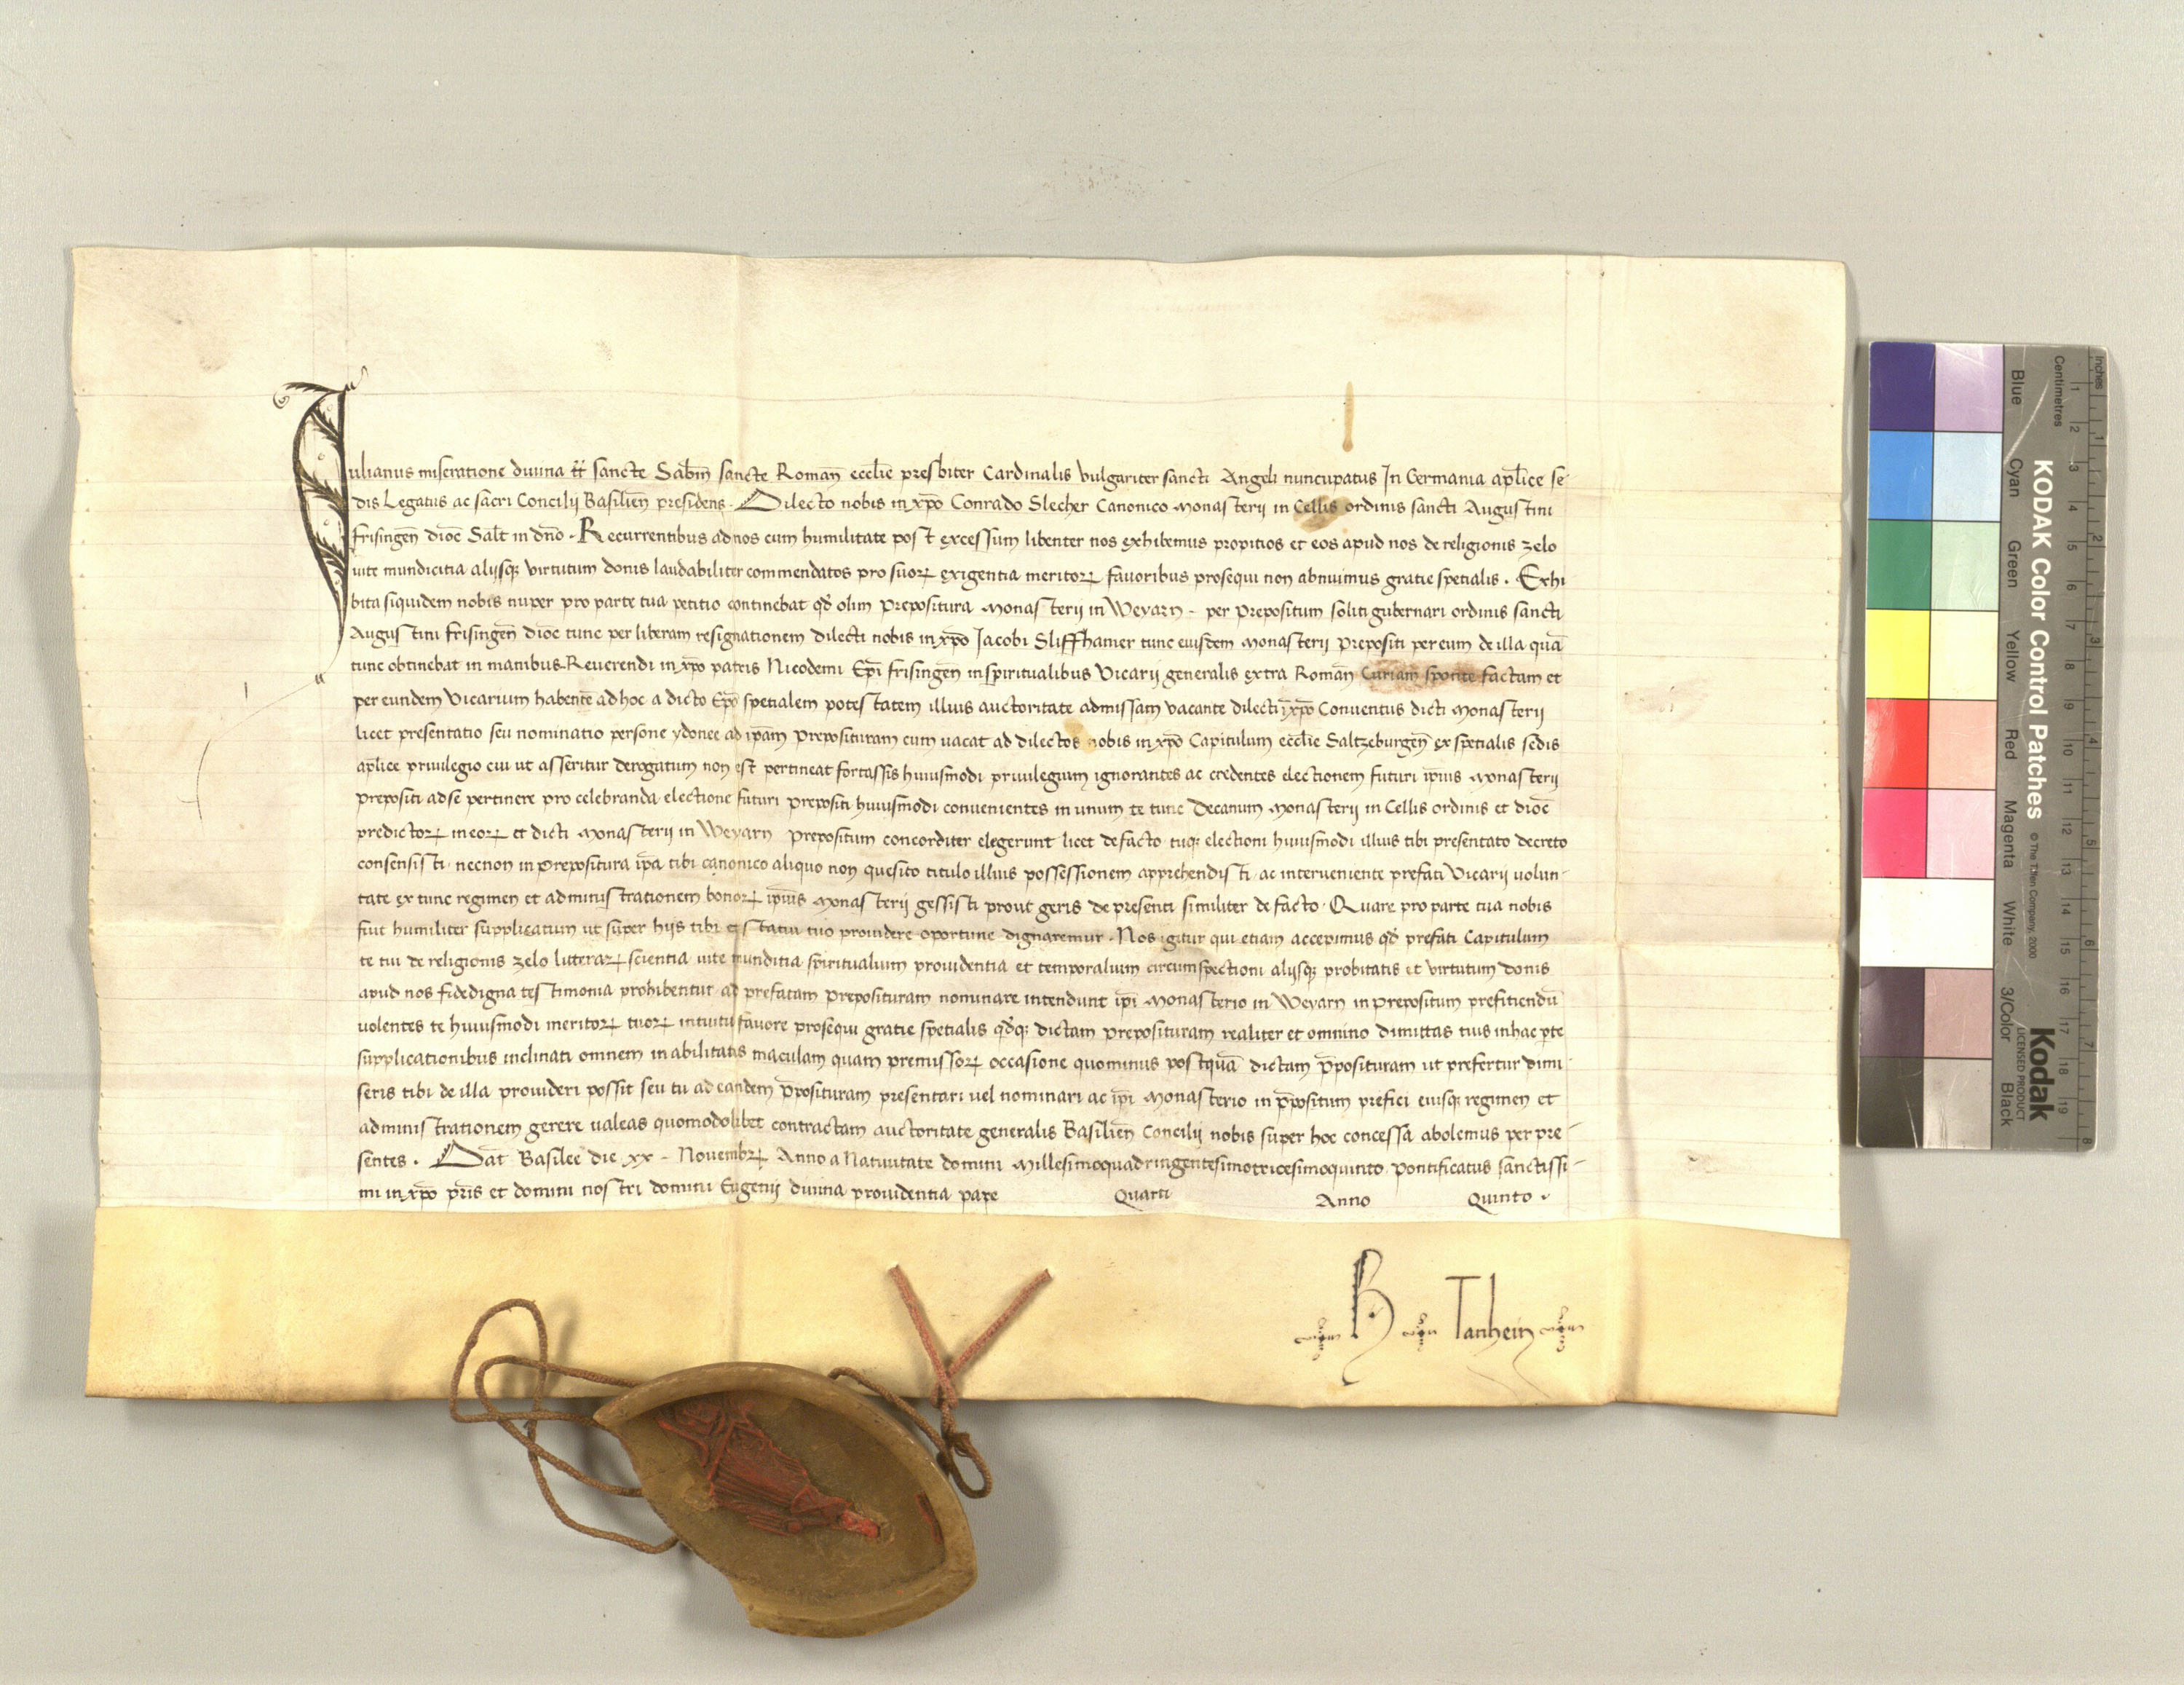 Iulianus miseratione diuina tt̃ sancte Sabiñ sancte Romañ ecclie presbiter Cardinalis vulgariter sancti Angeli nuncupatus In Germania aplice se-
dis Legatus ac sacri Concilij Basilieñ presidens. Dilecto nobis in xp̃o Conrado Slecher Canonico Monasterij in Cellis ordinis sancti Augustini
frisingeñ dioc̃ Salt̃ in dño. Recurrentibus ad nos cum humilitate post excessum libenter nos exhibemus propitios et eos apud nos de religionis zelo
uite mundicitia alijsqꝫ virtutum donis laudabiliter commendatos pro suoꝝ exigentia meritoꝝ fauoribus prosequi non abnuimus gratie spetialis. Exhi
bita siquidem nobis nuper pro parte tua petitio continebat qđ olim Prepositura Monasterij in Weyarn - per Prepositum soliti gubernari ordinis sancti
Augustini frisingeñ dioc̃ tunc per liberam resignationem dilecti nobis in xp̃o Jacobi Sliffhamer tunc eiusdem Monasterij Prepositi per eum de illa quā
tunc obtinebat in manibus Reuerendi in xp̃o patris Nicodemi Ep̃i frisingeñ in spiritualibus Vicarij generalis extra Romañ Curiam sponte factam et
per eundem Vicarium habentē ad hoc a dicto Ep̃o spetialem potestatem illius auctoritate admissam vacante dilecti ī xp̃o Conuentus dicti Monasterij
licet presentatio seu nominatio persone ydonee ad ip̃am Preposituram cum uacat ad dilectos nobis in xp̃o Capitulum ecclie Saltzeburgeñ ex spetialis sedis
aplice priuilegio cui ut asseritur derogatum non est pertineat fortassis huiusmodi priuilegium ignorantes ac credentes electionem futuri ip̃ius Monasterij
Prepositi ad se pertinere pro celebranda electione futuri Prepositi huiusmodi conuenientes in unum te tunc Decanum Monasterij in Cellis ordinis et dioc̃
predictoꝝ in eoꝝ et dicti Monasterij in Weyarn Prepositum concorditer elegerunt licet de facto tuqꝫ electioni huiusmodi illius tibi presentato decreto
consensisti necnon in Prepositura ip̃a tibi canonico aliquo non quesito titulo illius possessionem apprehendisti ac interueniente prefati Vicarij uolun-
tate ex tunc regimen et administrationem bonoꝝ ip̃ius Monasterij gessisti prout geris de presenti similiter de facto. Quare pro parte tua nobis
fuit humiliter supplicatum ut super hijs tibi et statui tuo prouidere oportune dignaremur. Nos igitur qui etiam accepimus qđ prefati Capitulum
te tui de religionis zelo litteraꝝ scientia uite munditia spiritualium prouidentia et temporalium circumspectioni alijsqꝫ probitatis et virtutum donis
apud nos fidedigna testimonia prohibentur ad prefatam Preposituram nominare intendunt ip̃i Monasterio in Weyarn in Prepositum prefitiendū
uolentes te huiusmodi meritoꝝ tuoꝝ intuitu fauore prosequi gratie spetialis qđqꝫ dictam Preposituram realiter et omnino dimittas tuis in hac pte
supplicationibus inclinati omnem inabilitatis maculam quam premissoꝝ occasione quominus postquā dictam p̄posituram ut prefertur dimi-
seris tibi de illa prouideri possit seu tu ad eandem p̄posituram presentari uel nominari ac ip̃i Monasterio in p̄positum prefici eiusqꝫ regimen et
administrationem gerere ualeas quomodolibet contractam auctoritate generalis Basilieñ Concilij nobis super hoc concessa abolemus per pre-
sentes. Dat̄ Basilee die xx - Nouembꝝ Anno a Natiuitate domini Millesimoquadringentesimotricesimoquinto Pontificatus sanctissi-
mi in xp̃o pr̃is et domini nostri domini Eugenij diuina prouidentia pape Quarti Anno Quinto.
H Tanhein
Inches
Centimetres
KODAK Color Control Patches © The Tiffen Company, 2000
Kodak
LICENSED PRODUCT
Blue Cyan Green Yellow Red Magenta White 3/Color Black
1 2 3 4 5 6 7 8 9 10 11 12 13 14 15 16 17 18 19
1 2 3 4 5 6 7 8